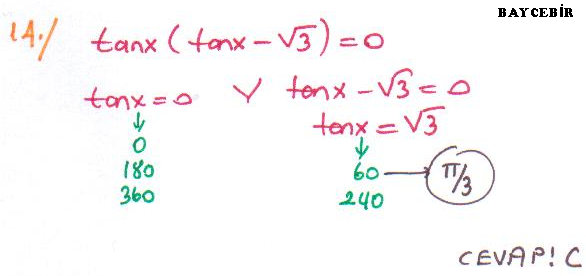 BAYCEBİR
14./ tanx(tanx-√3)=0
tanx=0 V tanx-√3=0
tanx=√3
0
180
360
60 → π/3
240
CEVAP! C